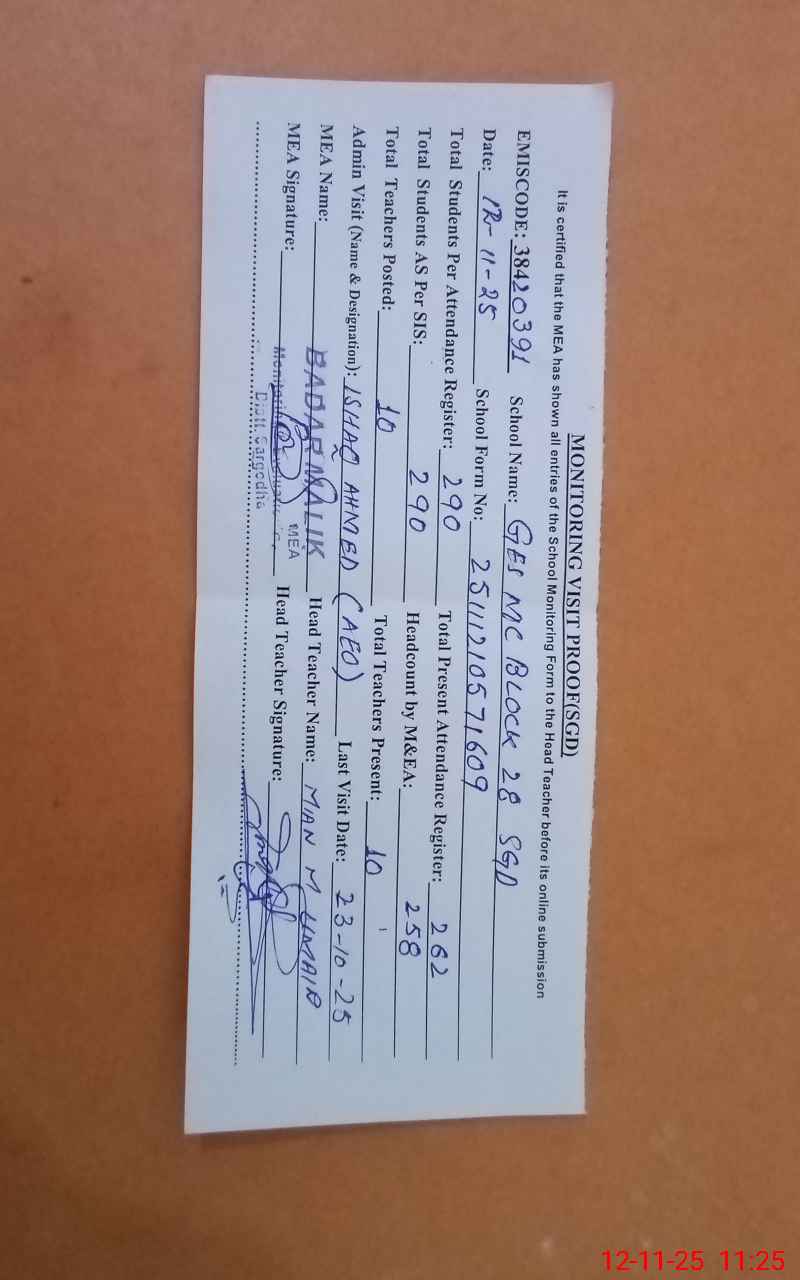 MONITORING VISIT PROOF(SGD)
It is certified that the MEA has shown all entries of the School Monitoring Form to the Head Teacher before its online submission
EMISCODE: 38420391 School Name: GES MC BLOCK 28 SGD
Date: 12-11-25 School Form No: 25111210571609
Total Students Per Attendance Register: 290 Total Present Attendance Register: 262
Total Students AS Per SIS: 290 Headcount by M&EA: 258
Total Teachers Posted: 10 Total Teachers Present: 10
Admin Visit (Name & Designation): ISHAQ AHMED (AEO) Last Visit Date: 23-10-25
MEA Name: BADAR MALIK MEA Head Teacher Name: MIAN M UMAIR
MEA Signature: Head Teacher Signature:
Distt. Sargodha
12-11-25 11:25